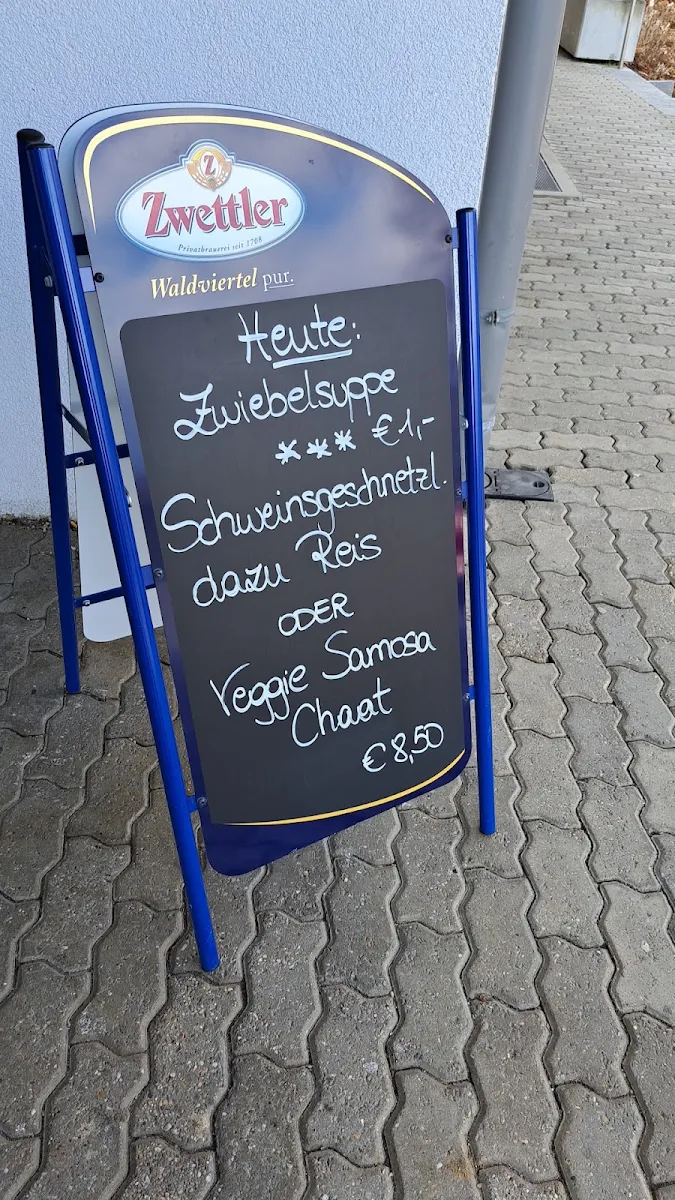 Z
Zwettler
Privatbrauerei seit 1708
Waldviertel pur.
Heute:
Zwiebelsuppe
*** €1,-
Schweinsgeschnetzl.
dazu Reis
ODER
Veggie Samosa
Chaat
€ 8,50